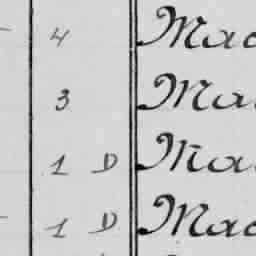 4 Mac
3 Ma
1 D Ma
1 D Mac